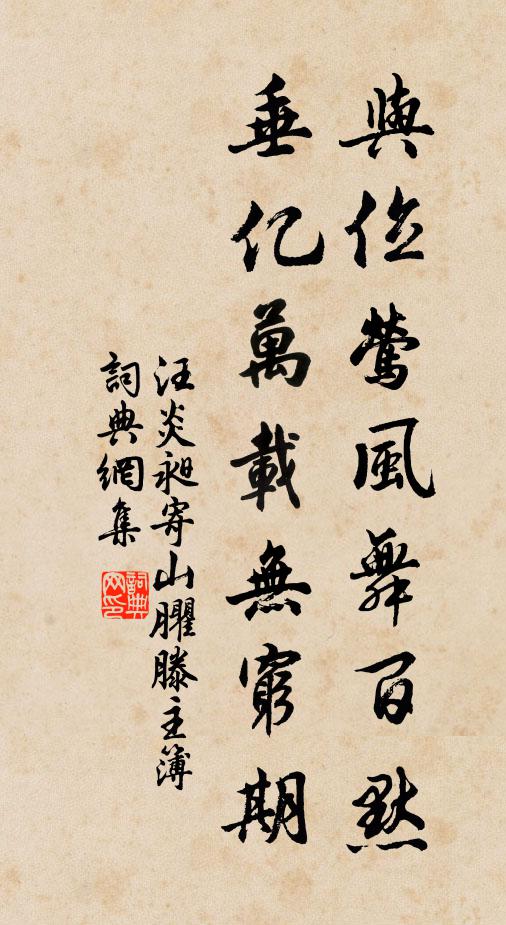 與鶯風舞百默
垂亿萬載無窮期
汪炎昶寄山臞滕主簿
詞典網集
詞典
网印